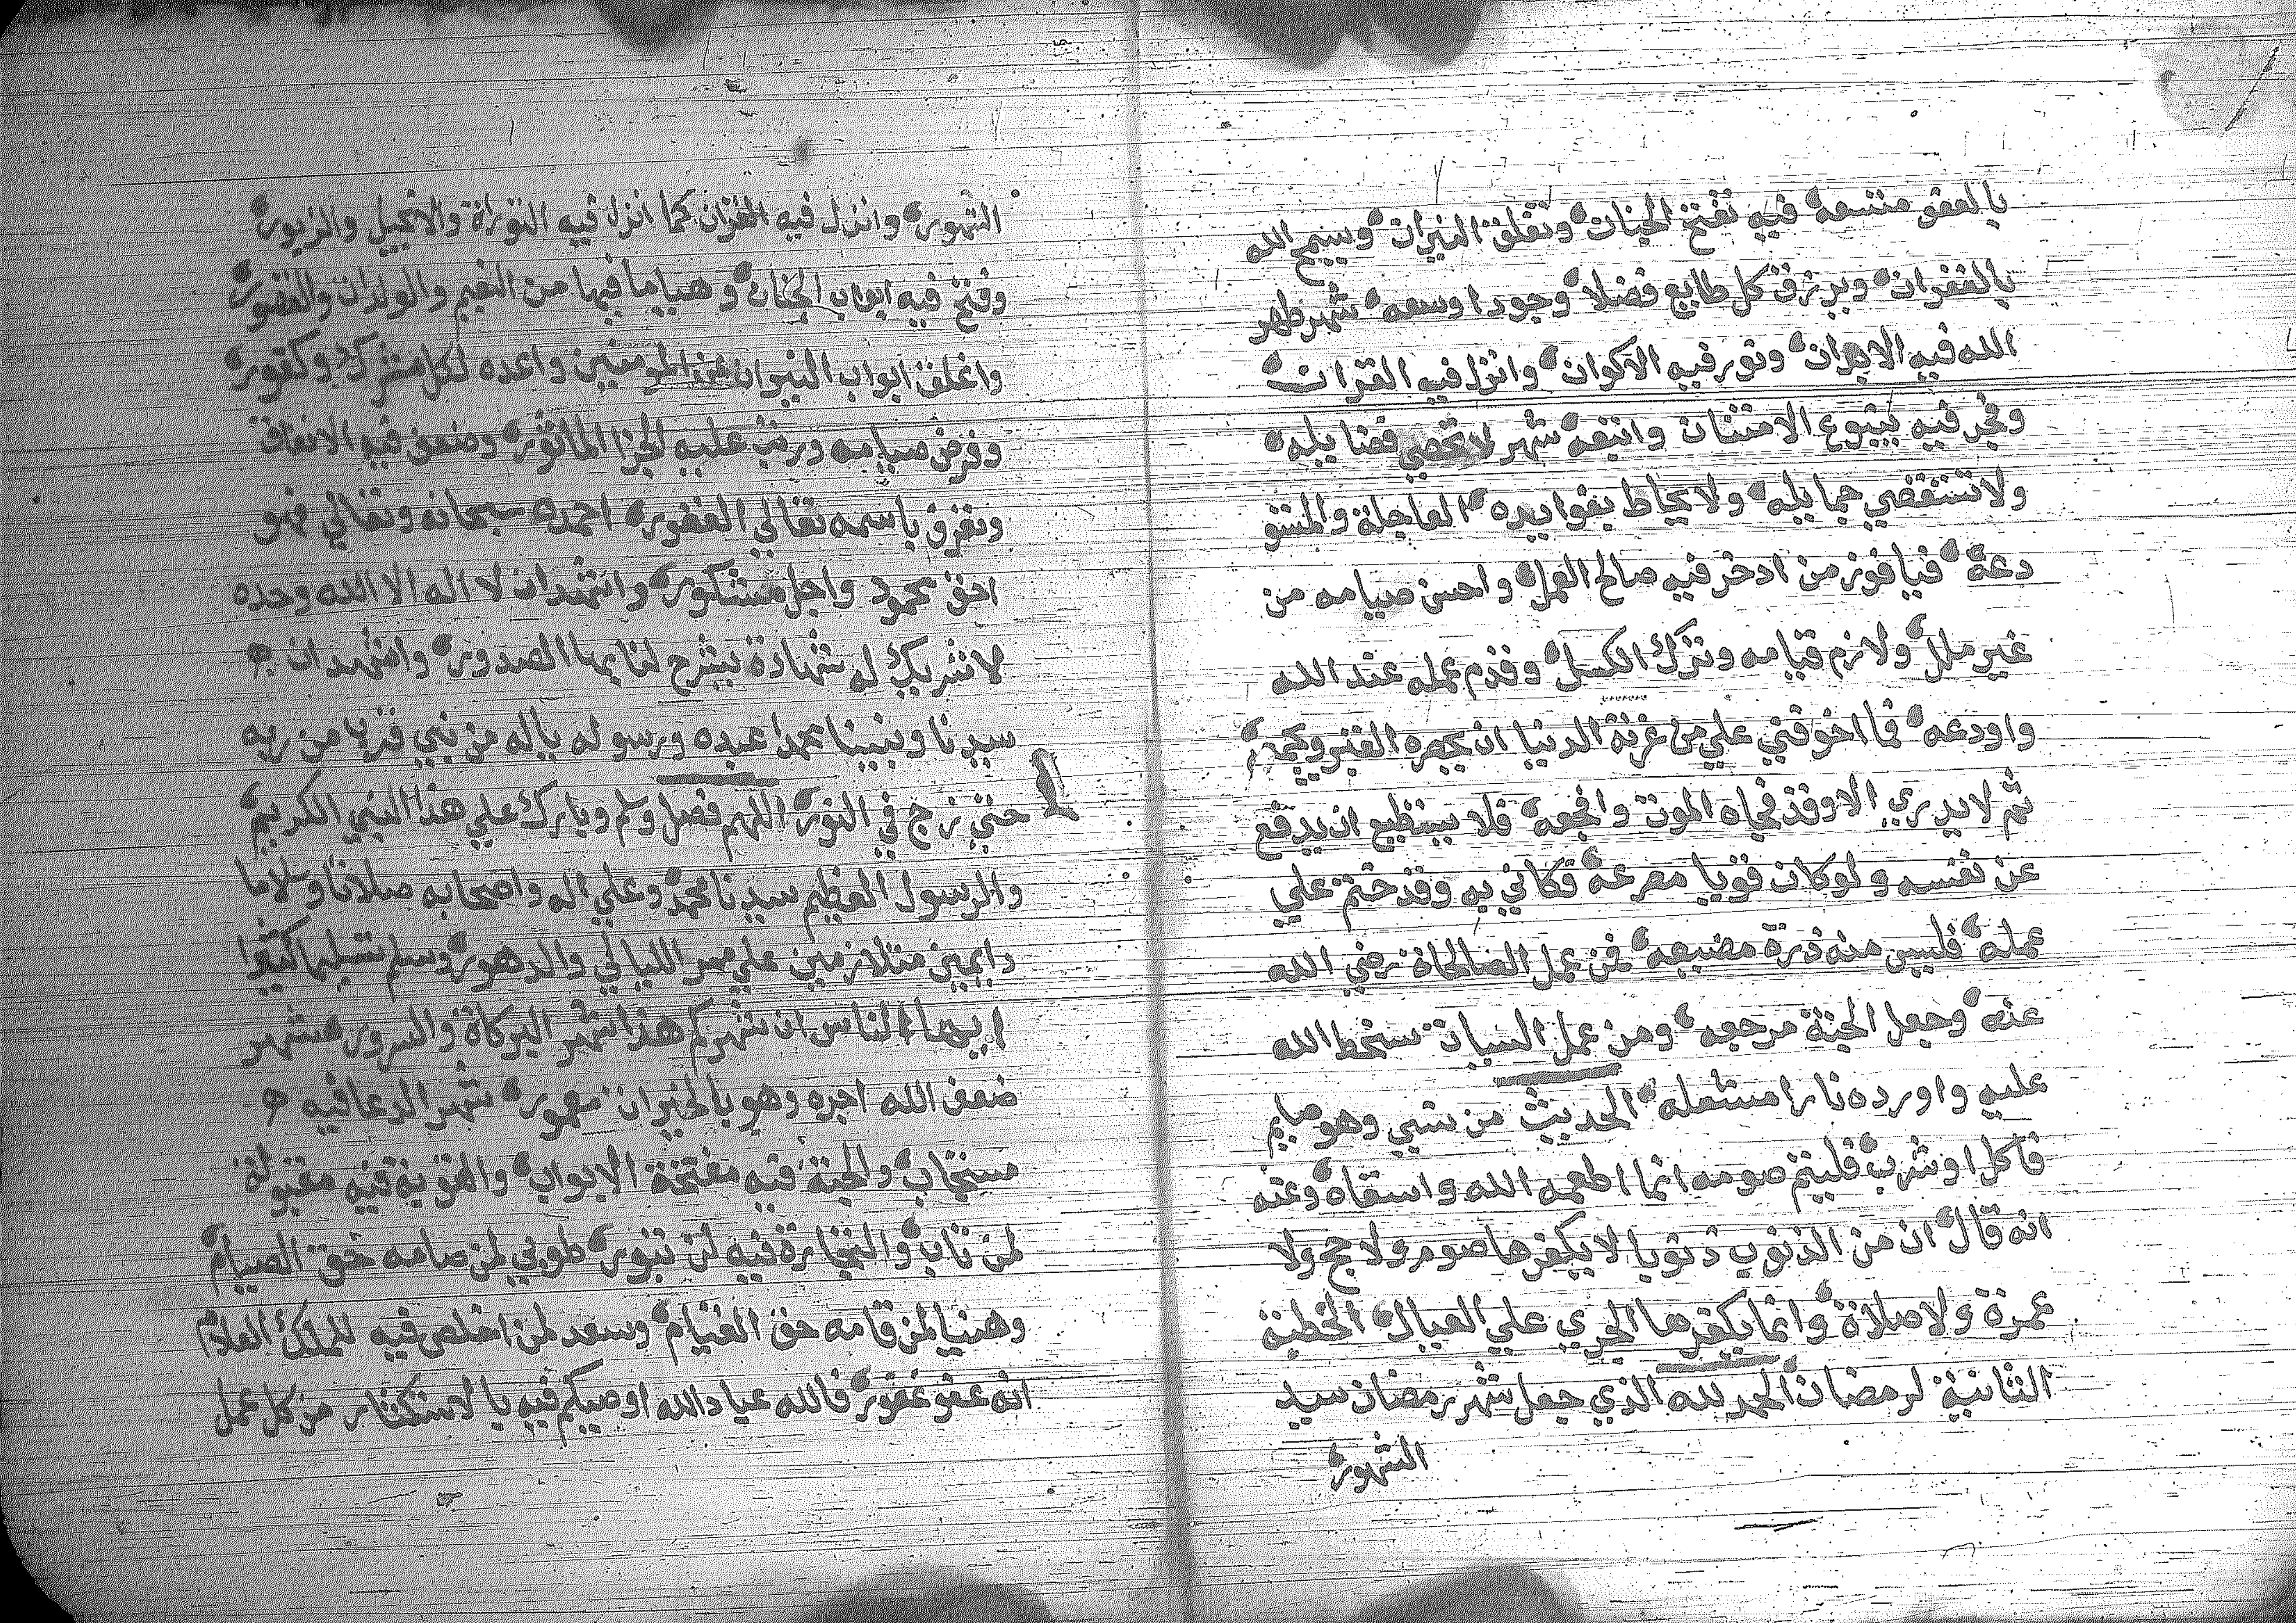 بالعفو متسعه فيه تفتح الجنات وتغلق النيران ويسبح الله
بالغفران ويرزق كل طايع فضلا وجودا وسعه شهر طهر
الله فيه الابدان ونور فيه الاكوان وانزل فيه القران
وفجر فيه ينبوع الامتنان وانبعه شهر لا تحصي فضايله
ولا تستقضي جمايله ولا يحاط بفوايده العاجلة والمستو
دعة فيا فوز من ادخر فيه صالح العمل واحسن صيامه من
غير ملل ولازم قيامه وترك الكسل وقدم عمله عند الله
واودعه فما اخوفني علي من غرته الدنيا ان يجره القبر ويجمعه
ثم لا يدري الا وقد فجاه الموت وافجعه فلا يستطيع ان يدفع
عن نفسه ولو كان قويا مصرعه فكاني به وقد ختم علي
عمله فليس منه ذرة مضيعه فمن عمل الصالحاة رضي الله
عنه وجعل الجنة مرجعه ومن عمل السيات سخط الله
عليه واورده نارا مشتعله الحديث من نسي وهو صايم
فاكل او شرب فليتم صومه انما اطعمه الله واسقاه وعنه
انه قال ان من الذنوب ذنوبا لا يكفرها صوم ولا حج ولا
عمرة ولا صلاة وانما يكفرها الجري علي العيال الخطبة
الثانية لرمضان الحمد لله الذي جعل شهر رمضان سيد
الشهور
الشهور وانزل فيه القران كما انزل فيه التوراة والانجيل والزبور
وفتح فيه ابواب الجنان وهيا ما فيها من النعيم والولدان والقصور
واغلق ابواب النيران عن المومنين واعده لكل مشرك وكفور
وفرض صيامه ورتب عليه الجزا الماثور وضعف فيه الانفاق
وتعرف باسمه تعالي الغفور احمده سبحانه وتعالي فهو
احق محمود واجل مشكور واشهد ان لا اله الا الله وحده
لا شريك له شهادة يشرح لنا بها الصدور واشهد ان
سيدنا ونبينا محمدا عبده ورسوله ياله من نبي قرب من ربه
حتي زج في النور اللهم فصل وسلم وبارك علي هذا النبي الكريم
والرسول العظيم سيدنا محمد وعلي اله واصحابه صلاتا وسلاما
دايمين متلازمين علي ممر الليالي والدهور وسلم تسليما كثيرا
ايها الناس ان شهركم هذا شهر البركاة والسرور شهر
ضعف الله اجره وهو بالخيران معمور شهر الدعا فيه
مستجاب والجنة فيه مفتحة الابواب والتوبة فيه مقبولة
لمن تاب والتجارة فيه لن تبور طوبي لمن صامه حق الصيام
وهنيا لمن قامه حق القيام وسعد لمن اخلص فيه للملك العلام
انه عفو غفور فالله عباد الله اوصيكم فيه بالاستكثار من كل عمل